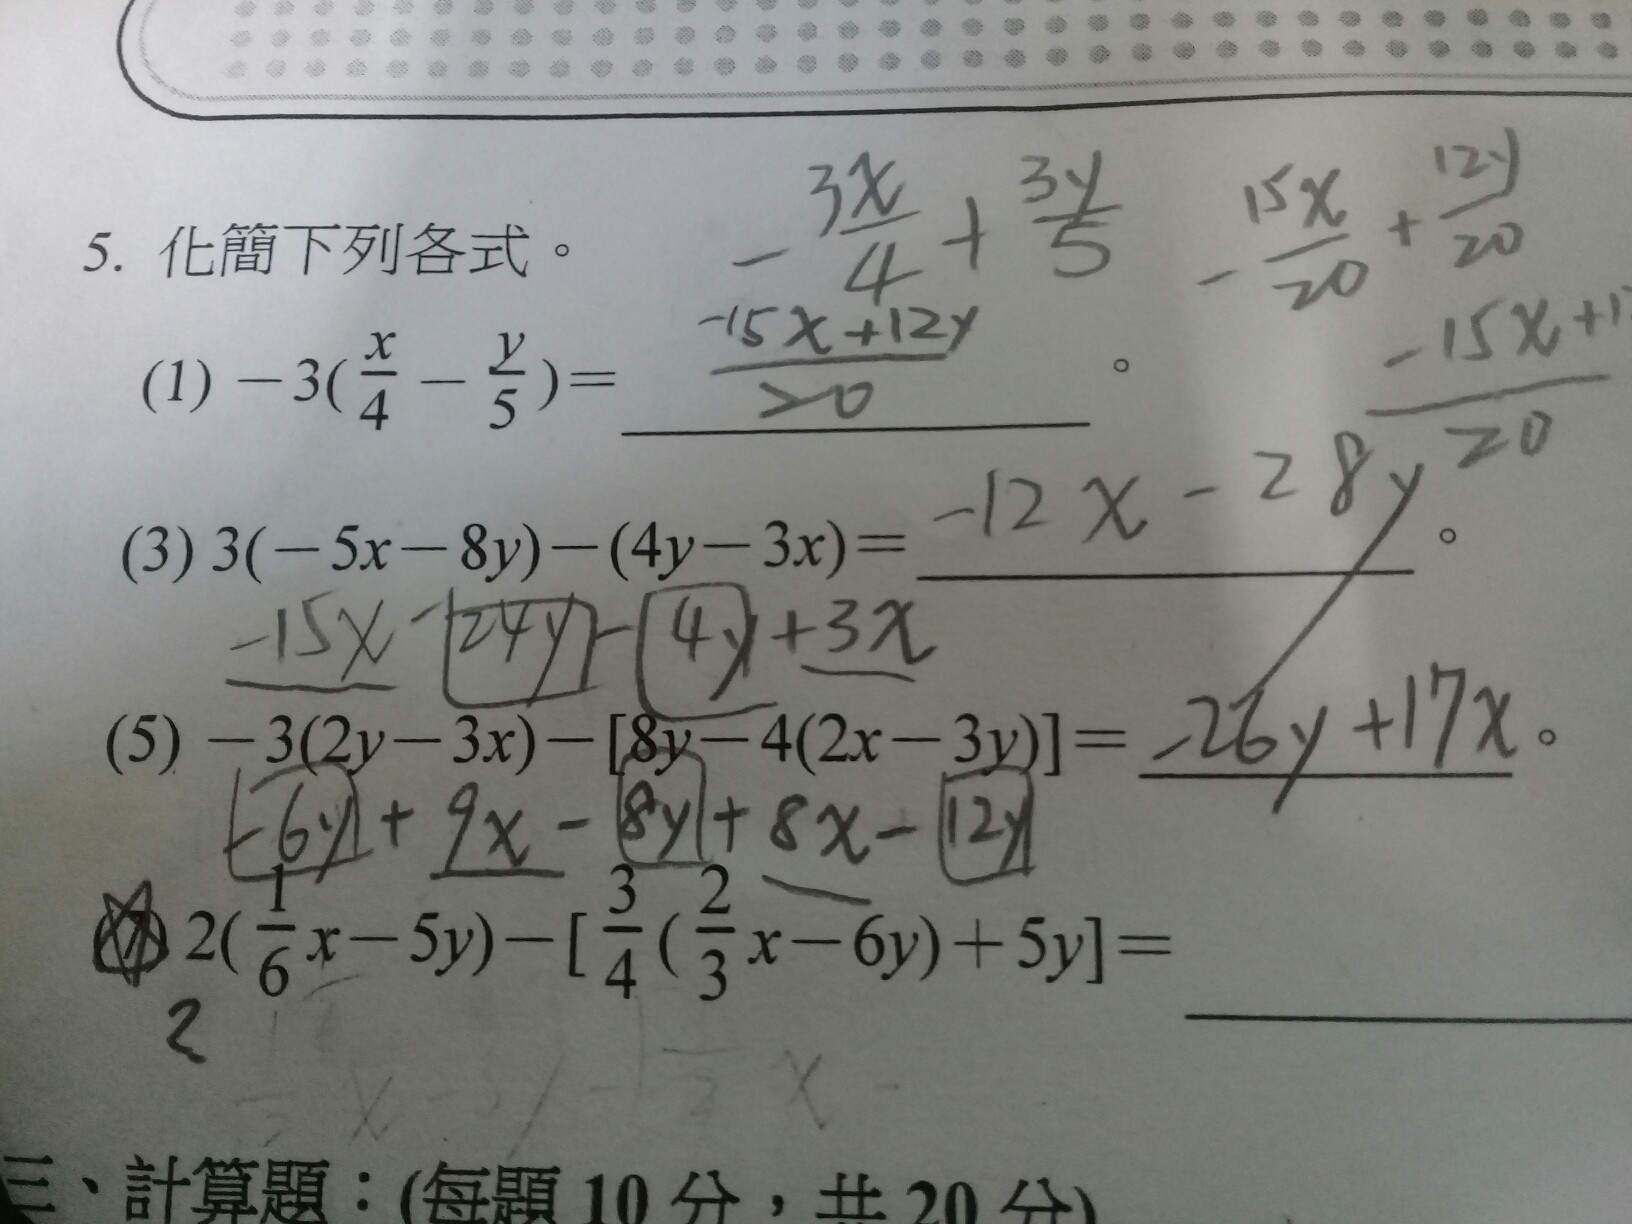 -3x/4 + 3y/5 -15x/20 + 12y/20
5. 化簡下列各式。
(1) -3(x/4 - y/5)= -15x+12y/20 。 -15x+1 /20
(3) 3(-5x-8y)-(4y-3x)= -12x-28y 。
-15x-24y-4y+3x
(5) -3(2y-3x)-[8y-4(2x-3y)]= -26y+17x 。
-6y+9x-8y+8x-12y
(7) 2(1/6x-5y)-[3/4(2/3x-6y)+5y]=
2
三、計算題：(每題 10 分，共 20 分)